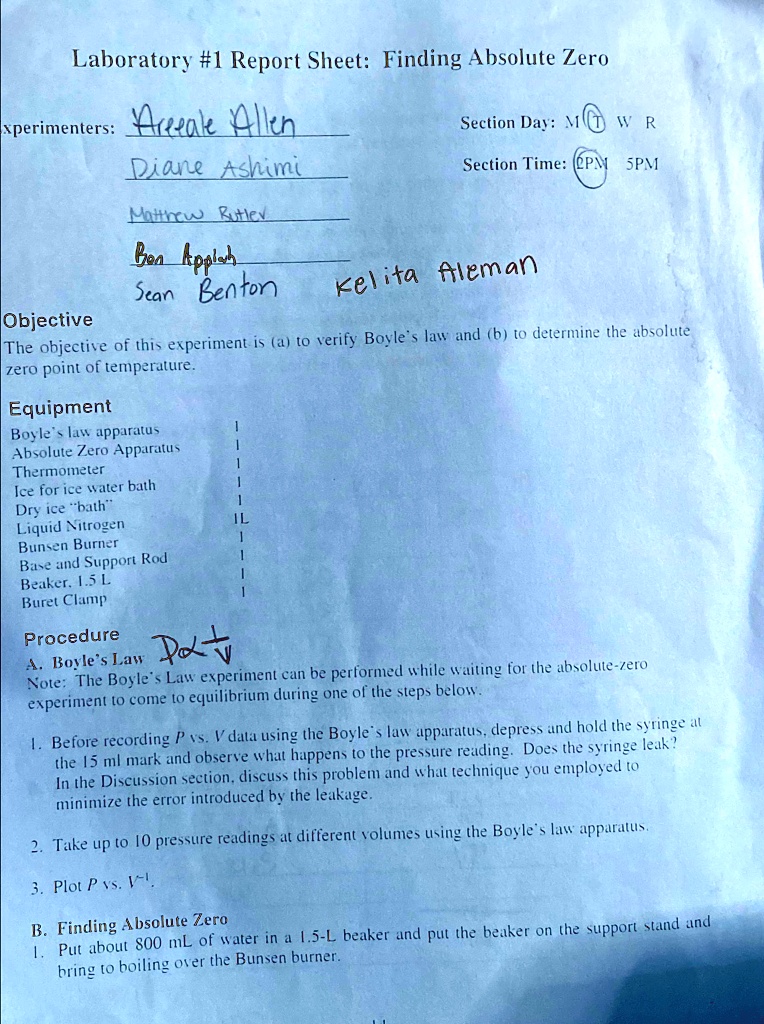 Laboratory #1 Report Sheet: Finding Absolute Zero
xperimenters: Allen
Section Day: M T W R
Diane Ashimi
Section Time: 2PM 5PM
Matthew Butler
Ben
Sean Benton Kelita Aleman
Objective
The objective of this experiment is (a) to verify Boyle's law and (b) to determine the absolute
zero point of temperature.
Equipment
Boyle's law apparatus 1
Absolute Zero Apparatus 1
Thermometer 1
Ice for ice water bath 1
Dry ice "bath" 1
Liquid Nitrogen 1L
Bunsen Burner 1
Base and Support Rod 1
Beaker, 1.5 L 1
Buret Clamp 1
Procedure
A. Boyle's Law P∝1/V
Note: The Boyle's Law experiment can be performed while waiting for the absolute-zero
experiment to come to equilibrium during one of the steps below.
1. Before recording P vs. V data using the Boyle's law apparatus, depress and hold the syringe at
the 15 ml mark and observe what happens to the pressure reading. Does the syringe leak?
In the Discussion section, discuss this problem and what technique you employed to
minimize the error introduced by the leakage.
2. Take up to 10 pressure readings at different volumes using the Boyle's law apparatus.
3. Plot P vs. V⁻¹.
B. Finding Absolute Zero
1. Put about 800 mL of water in a 1.5-L beaker and put the beaker on the support stand and
bring to boiling over the Bunsen burner.